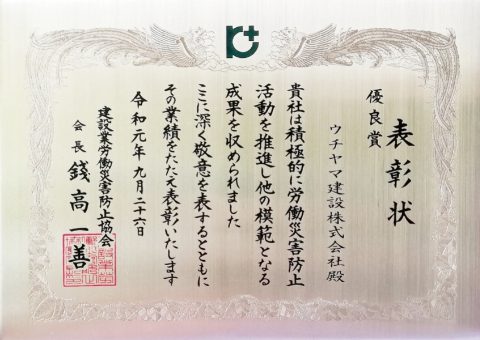 表彰状
優良賞
ウチヤマ建設株式会社殿
貴社は積極的に労働災害防止
活動を推進し他の模範となる
成果を収められました
ここに深く敬意を表するとともに
その業績をたたえ表彰いたします
令和元年九月二十六日
建設業労働災害防止協会
会長 錢高一善